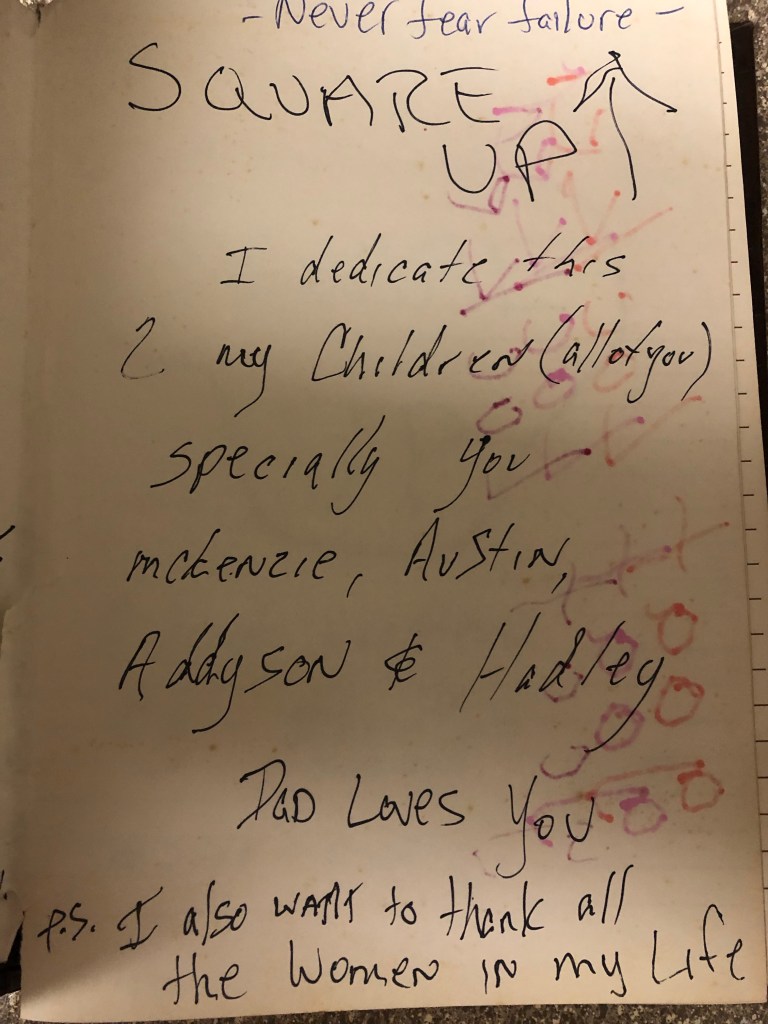 - Never fear failure -
SQUARE ↑
UP
I dedicate this
2 my Children (all of you)
specially you
mckenzie, Austin,
Addyson & Hadley
Dad Loves You
P.S. I also WANT to thank all
the Women in my Life